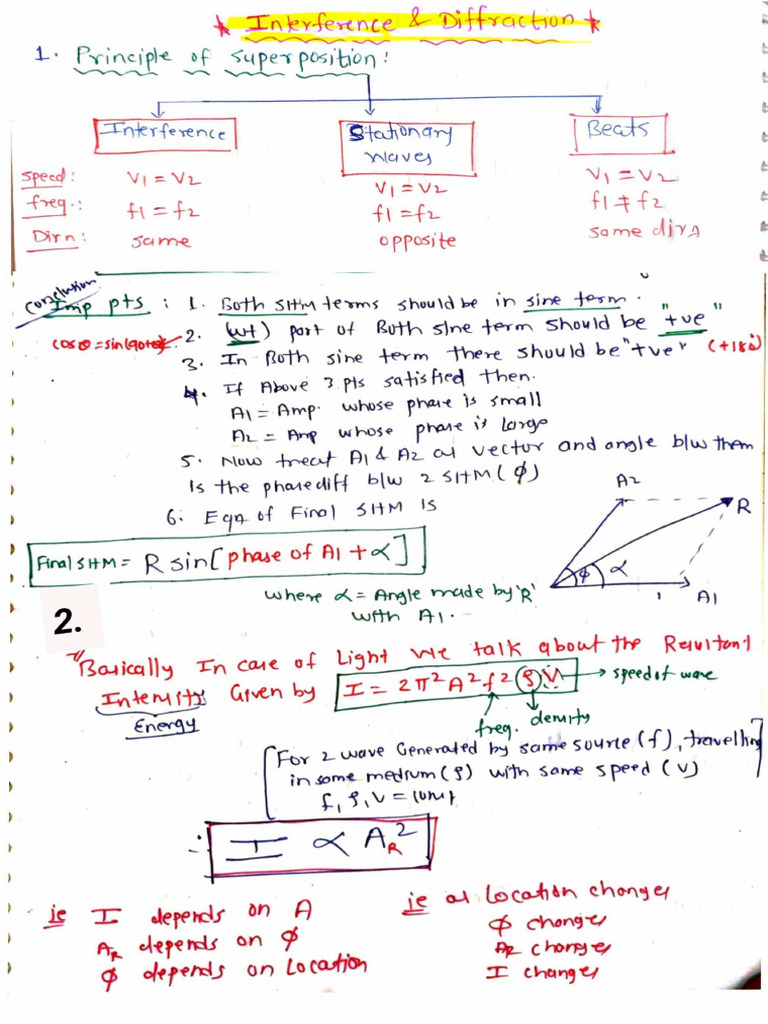 ★ Interference & Diffraction ★
1. Principle of superposition:
Interference Stationary waves Beats
speed: V1 = V2 V1 = V2 V1 = V2
freq.: f1 = f2 f1 = f2 f1 ≠ f2
Dirn: same opposite same dirn
conclusion
Imp pts : 1. Both SHM terms should be in sine term.
cosθ = sin(90+θ) 2. (wt) part of Both sine term should be "+ve"
3. In Both sine term there should be "+ve" (+180)
4. If Above 3 pts satisfied then.
A1 = Amp. whose phase is small
A2 = Amp whose phase is large
5. Now treat A1 & A2 as vector and angle b/w them
is the phase diff b/w 2 SHM (ϕ)
6. Eqn of Final SHM is
A2
R
ϕ α
A1
Final SHM = R sin[phase of A1 + α]
where α = Angle made by 'R'
with A1.
2.
Basically In case of Light we talk about the Resultant
Intensity Given by I = 2π²A²f²ρV → speed of wave
Energy
freq. density
[For 2 wave Generated by same source (f), travelling
in same medium (ρ) with same speed (V)
f, ρ, V = const
∴ I ∝ A_R²
ie I depends on A
A_R depends on ϕ
ϕ depends on Location
ie as Location changes
ϕ changes
A_R changes
I changes